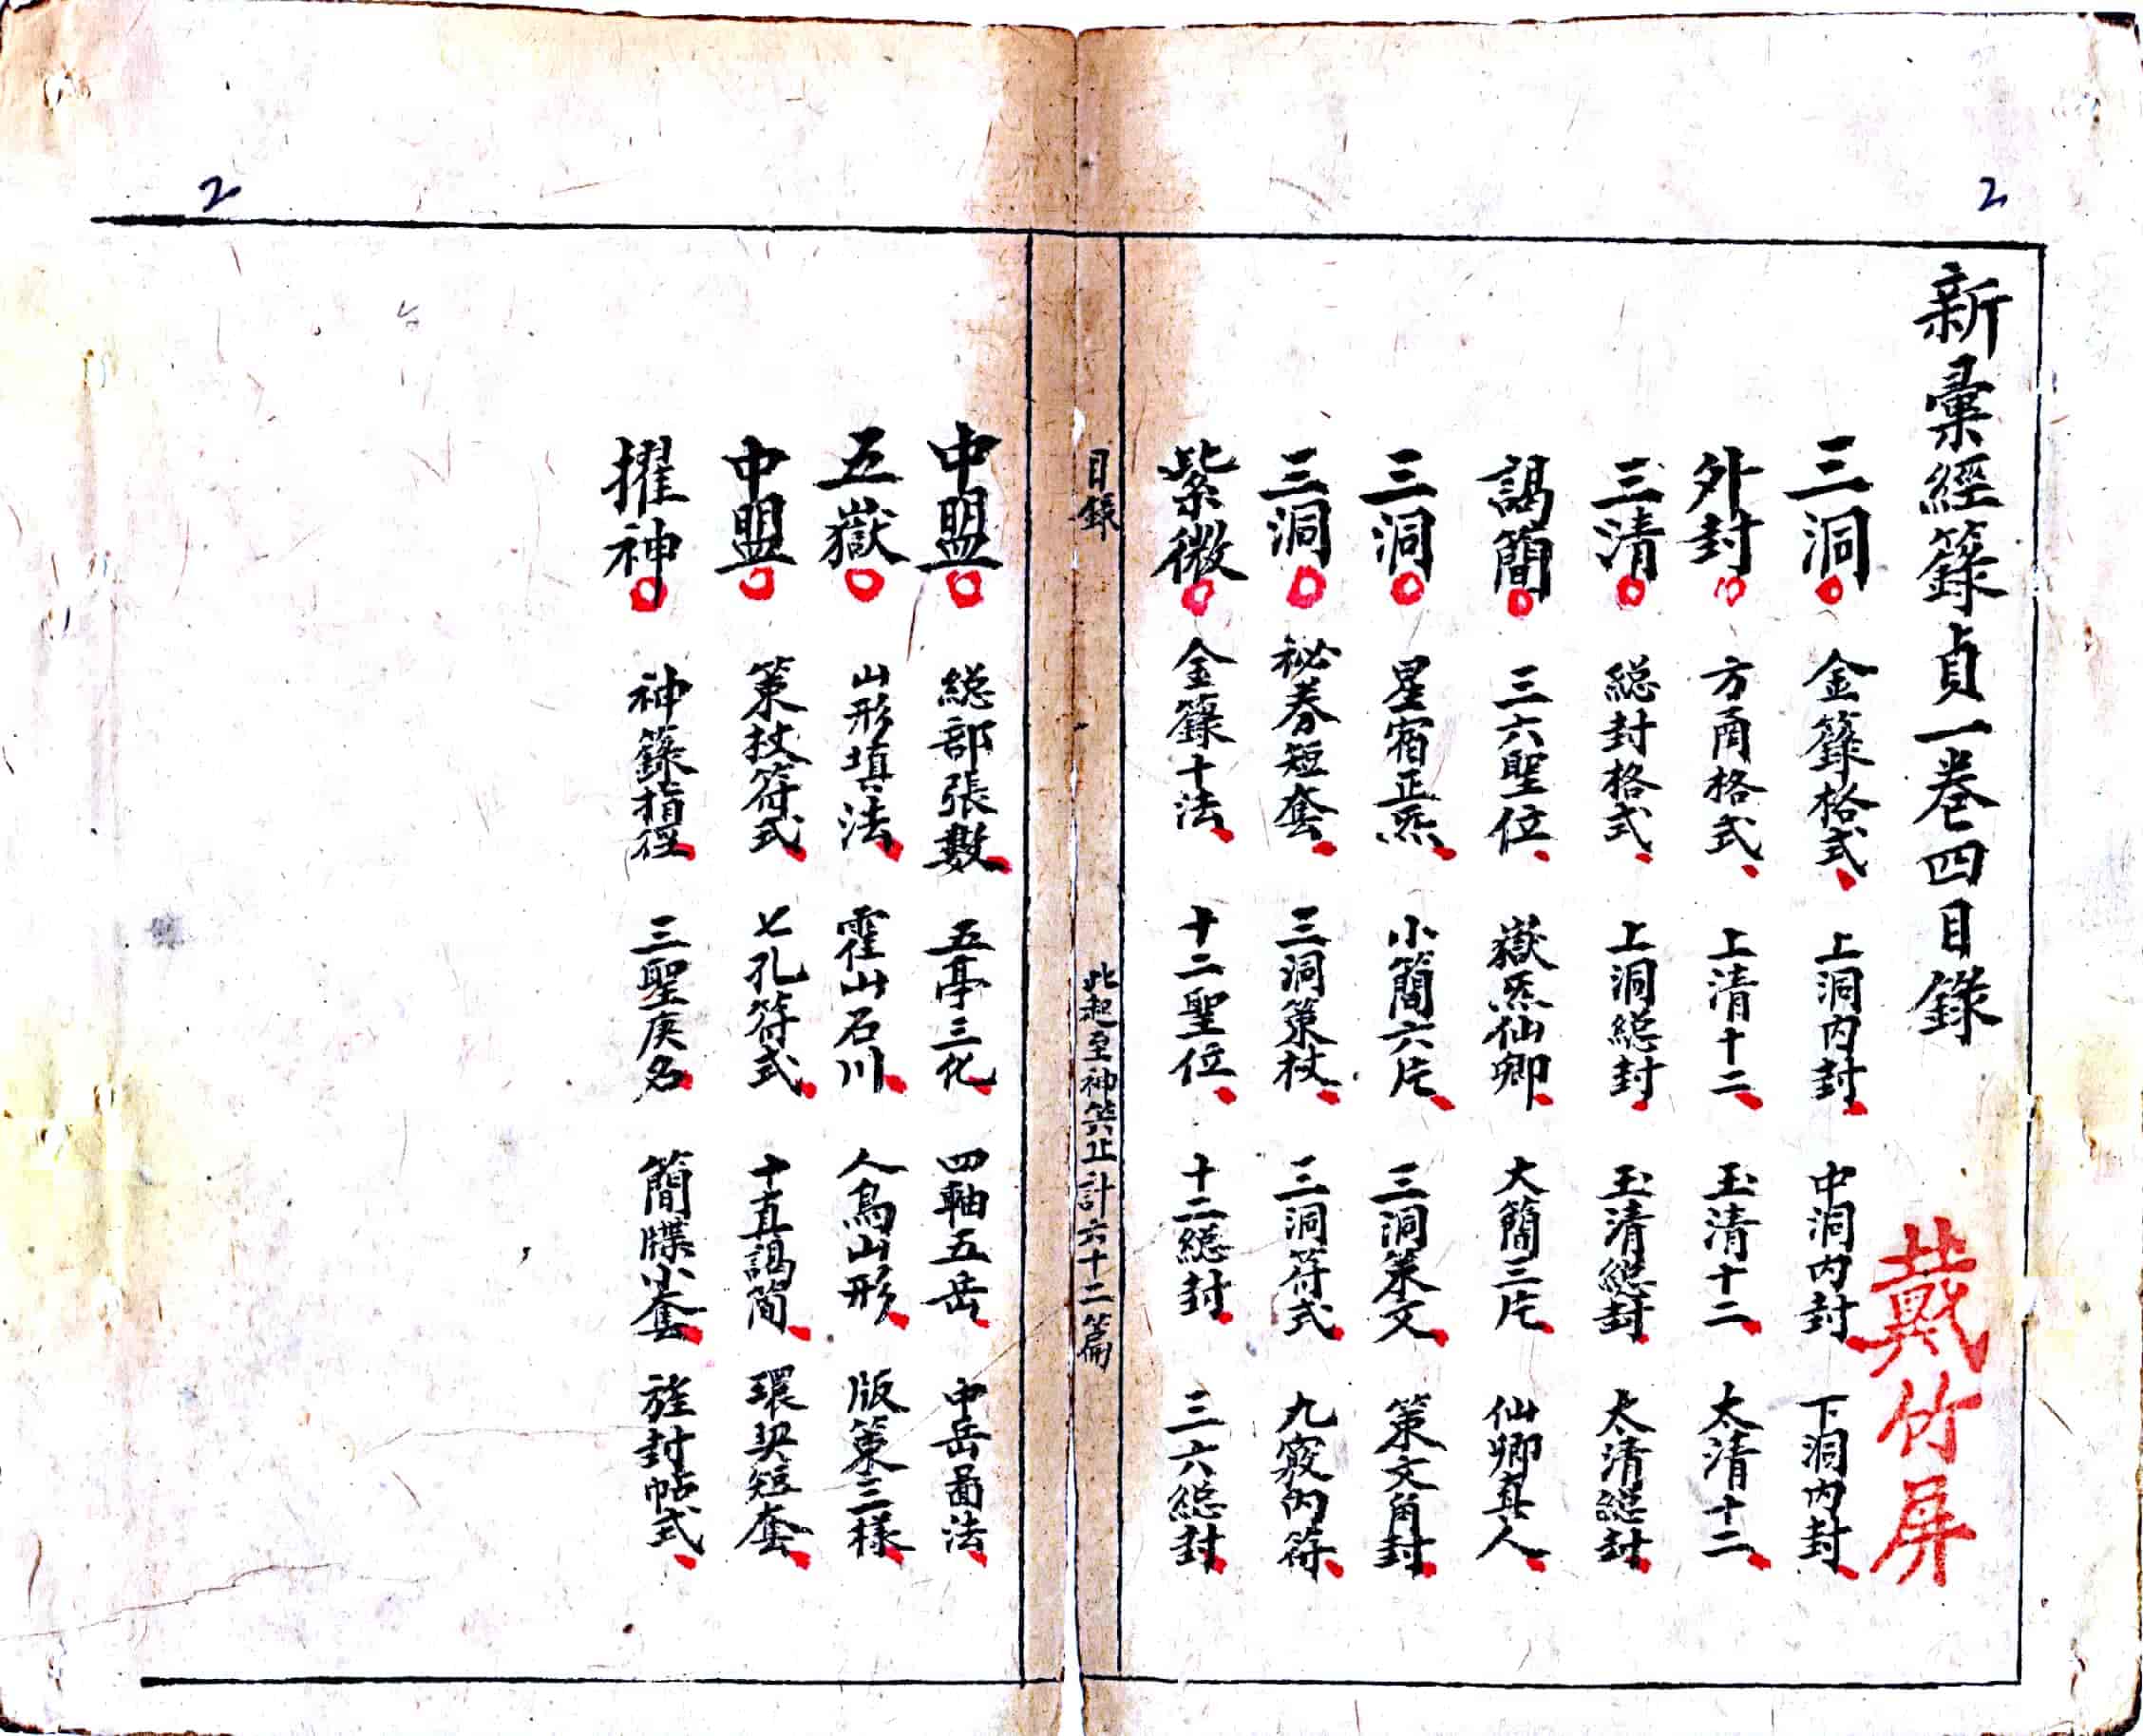 2
2
新彙經籙貞一卷四目錄
戴竹屏
三洞 金籙格式 上洞內封 中洞內封 下洞內封
外封 方甬格式 上清十二 玉清十二 太清十二
三清 総封格式 上洞総封 玉清総封 太清総封
謁簡 三六聖位 嶽炁仙卿 大簡三片 仙卿真人
三洞 星宿正炁 小簡六片 三洞策文 策文角封
三洞 秘券短套 三洞策杖 三洞符式 九竅內符
紫微 金籙十法 十二聖位 十二総封 三六総封
目錄 此起至神共止計六十二篇
中盟 総部張數 五亭三化 四軸五岳 中岳啚法
五嶽 山形填法 霍山石川 人鳥山形 版策三樣
中盟 策杖符式 七孔符式 十直謁简 環契短套
擢神 神籙指徑 三聖庚名 簡牒小套 旌封帖式